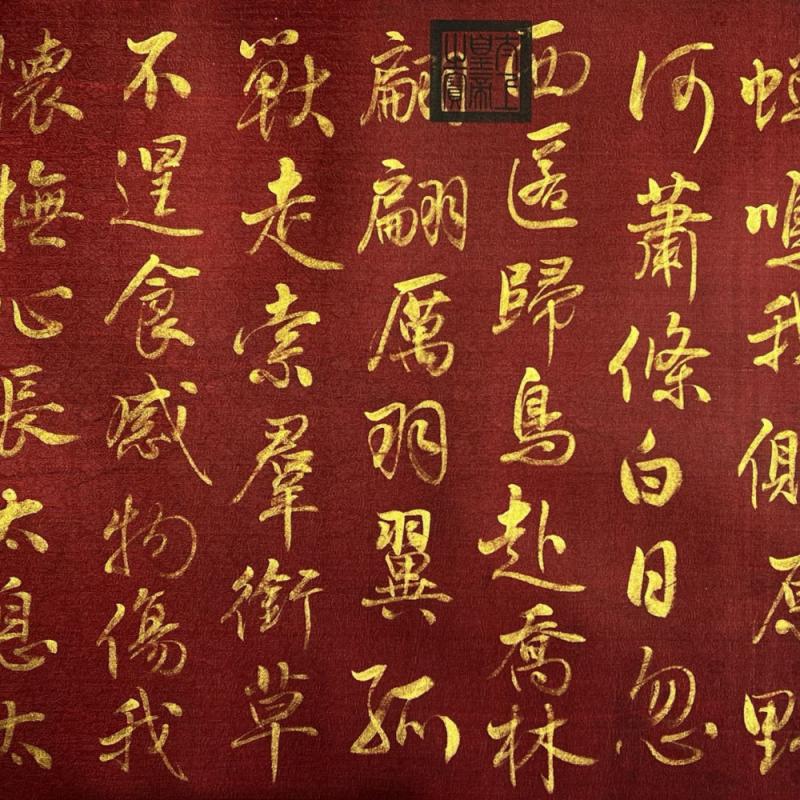 蟬鳴我側原野
何蕭條白日忽
西匿歸鳥赴喬林
翩翩厲羽翼孤
獸走索羣銜草
不遑食感物傷我
懷撫心長太息太
太上皇帝之寶